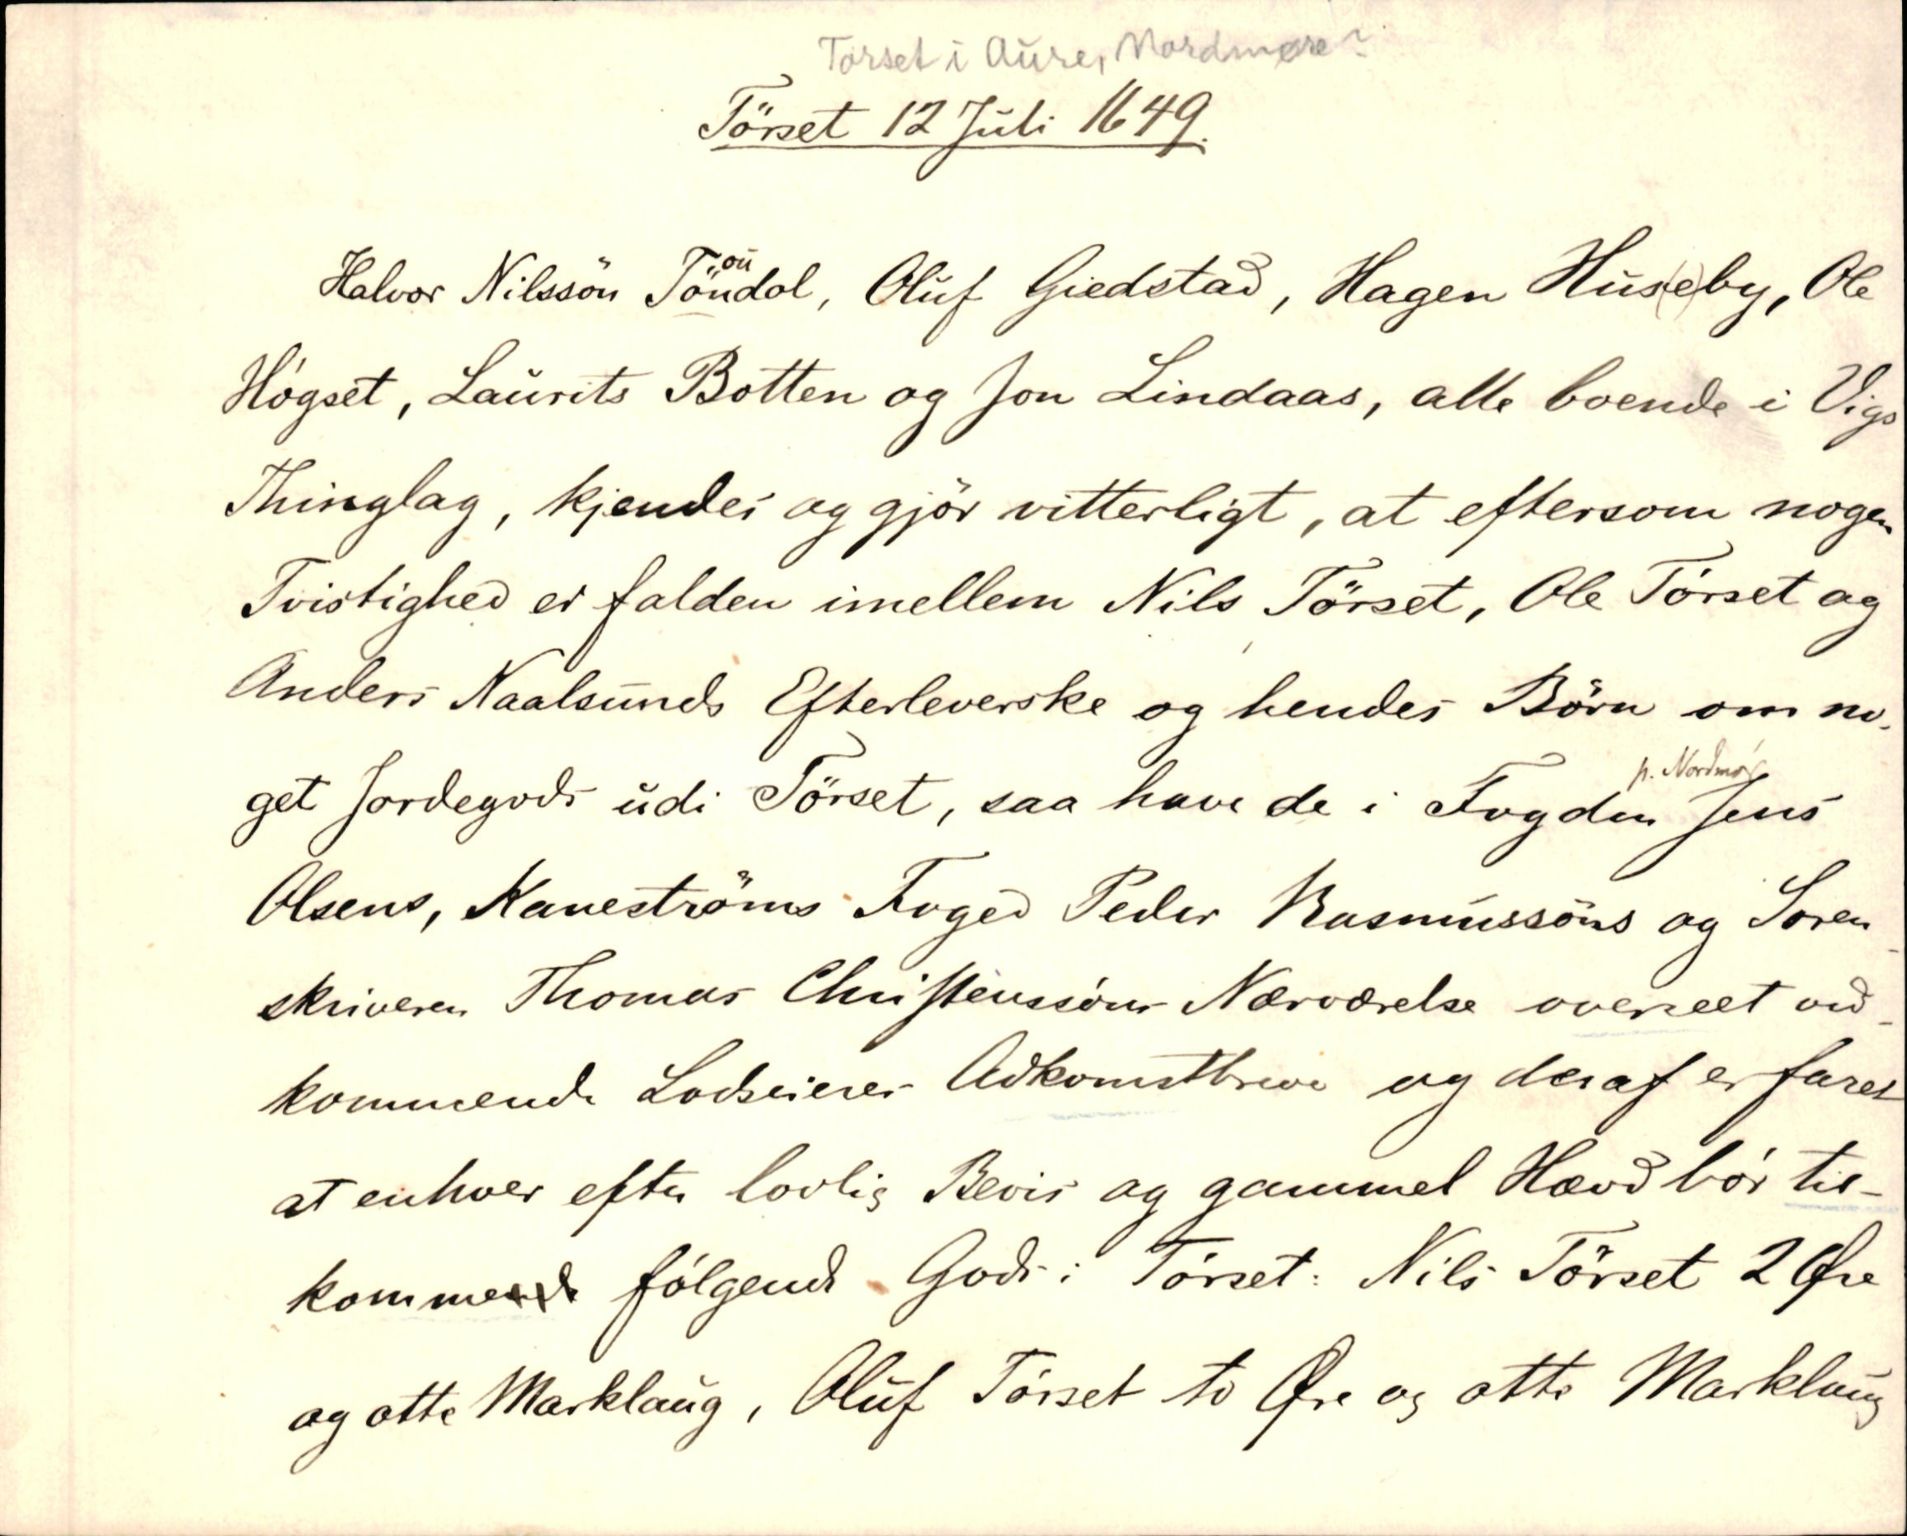 Torset i Aure, Nordmøre?
Törset 12 Juli 1649.
ou
Halvor Nilssön Töndol, Oluf Giedstad, Hagen Hus(e)by, Ole
Högset, Laurits Botten og Jon Lindaas, alle boende i Vigs
Thinglag, kjendes og gjör vitterligt, at eftersom nogen
Tvistighed er falden imellem Nils Törset, Ole Törset og
Anders Naalsunds Efterleverske og hendes Börn om no-
p. Nordmør
get Jordegods udi Törset, saa have de i Fogden Jens
Olsens, Kaneströms Foged Peder Rasmussöns og Soren-
skriveren Thomas Christenssöns Nærværelse overseet ved-
kommende Lodseieres Adkomstbreve og deraf erfaret
at enhver efter lovlig Bevis og gammel Hævd bör til-
kommende fölgende Gods i Törset: Nils Törset 2 Øre
og otte Marklaug, Oluf Törset to Øre og otte Marklaug